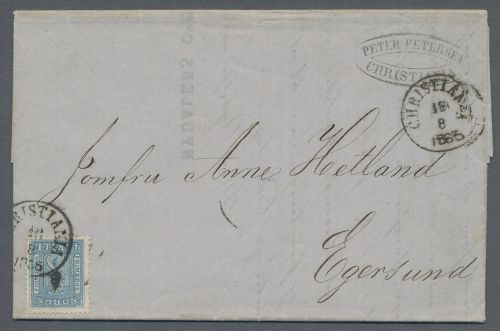 PETER PETERSEN
CHRISTIANIA
CHRISTIANIA
18
8
Jomfru Anne Hetland
Egersund
CHRISTIANIA
18
8
NORGE
NYDALENS